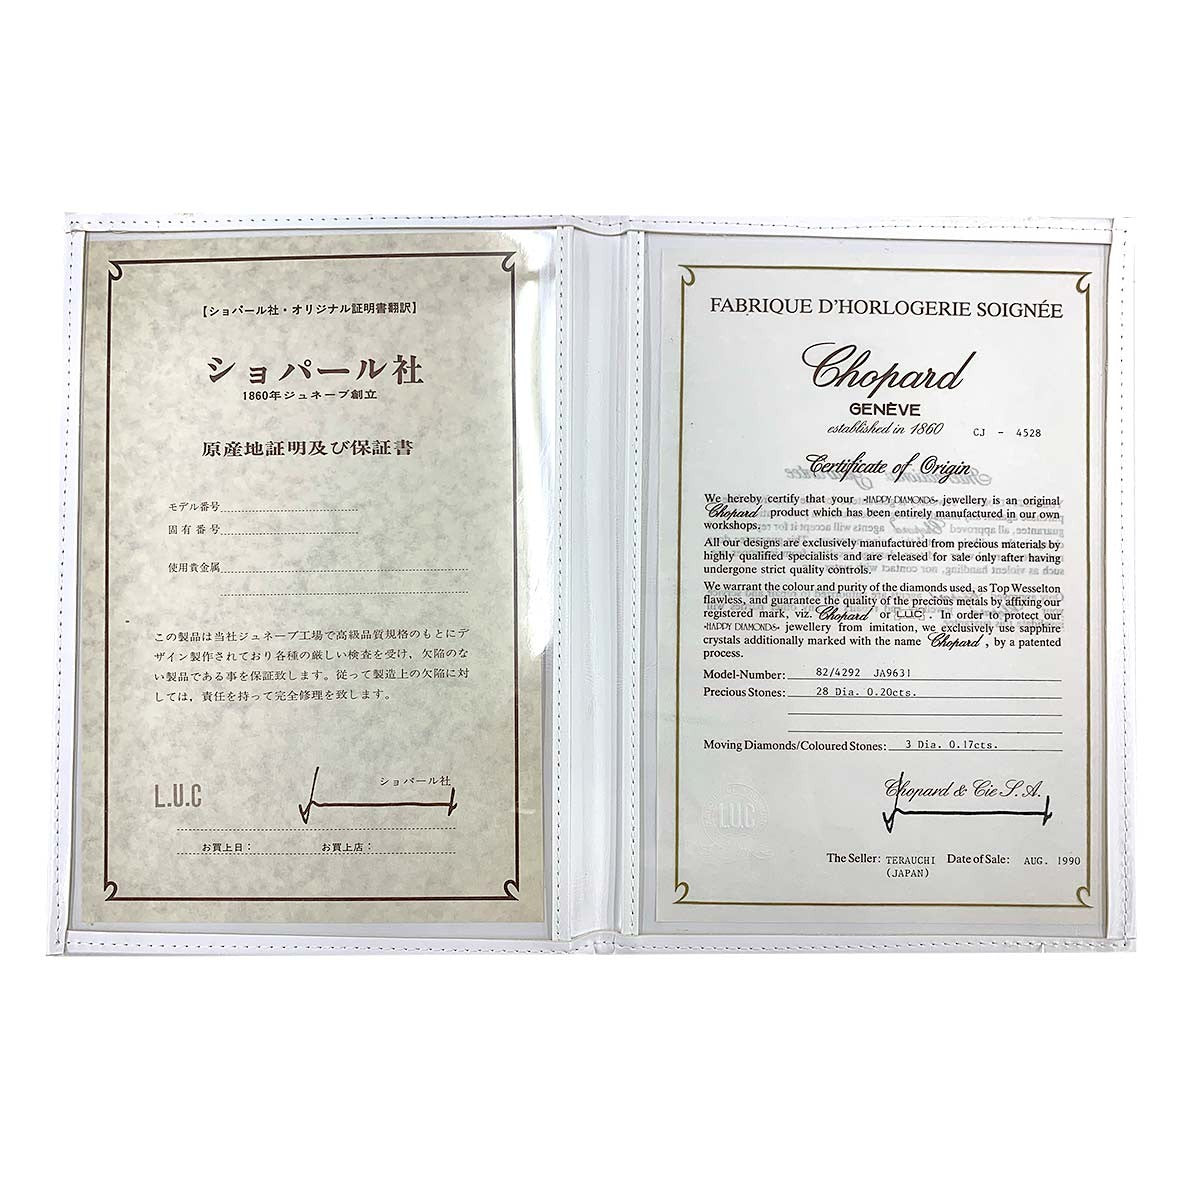 【ショパール社・オリジナル証明書翻訳】
ショパール社
1860年ジュネーブ創立
原産地証明及び保証書
モデル番号
固有番号
使用貴金属
この製品は当社ジュネーブ工場で高級品質規格のもとにデ
ザイン製作されており各種の厳しい検査を受け、欠陥のな
い製品である事を保証致します。従って製造上の欠陥に対
しては、責任を持って完全修理を致します。
ショパール社
L.U.C
お買上日： お買上店：
FABRIQUE D'HORLOGERIE SOIGNÉE
Chopard
GENÈVE
established in 1860 CJ - 4528
Certificate of Origin
We hereby certify that your «HAPPY DIAMONDS» jewellery is an original
Chopard product which has been entirely manufactured in our own
workshops.
All our designs are exclusively manufactured from precious materials by
highly qualified specialists and are released for sale only after having
undergone strict quality controls.
We warrant the colour and purity of the diamonds used, as Top Wesselton
flawless, and guarantee the quality of the precious metals by affixing our
registered mark, viz. Chopard or L.U.C. In order to protect our
«HAPPY DIAMONDS» jewellery from imitation, we exclusively use sapphire
crystals additionally marked with the name Chopard, by a patented
process.
Model-Number: 82/4292 JA9631
Precious Stones: 28 Dia. 0.20cts.
Moving Diamonds/Coloured Stones: 3 Dia. 0.17cts.
Chopard & Cie S.A.
L.U.C
The Seller: TERAUCHI Date of Sale: AUG. 1990
(JAPAN)